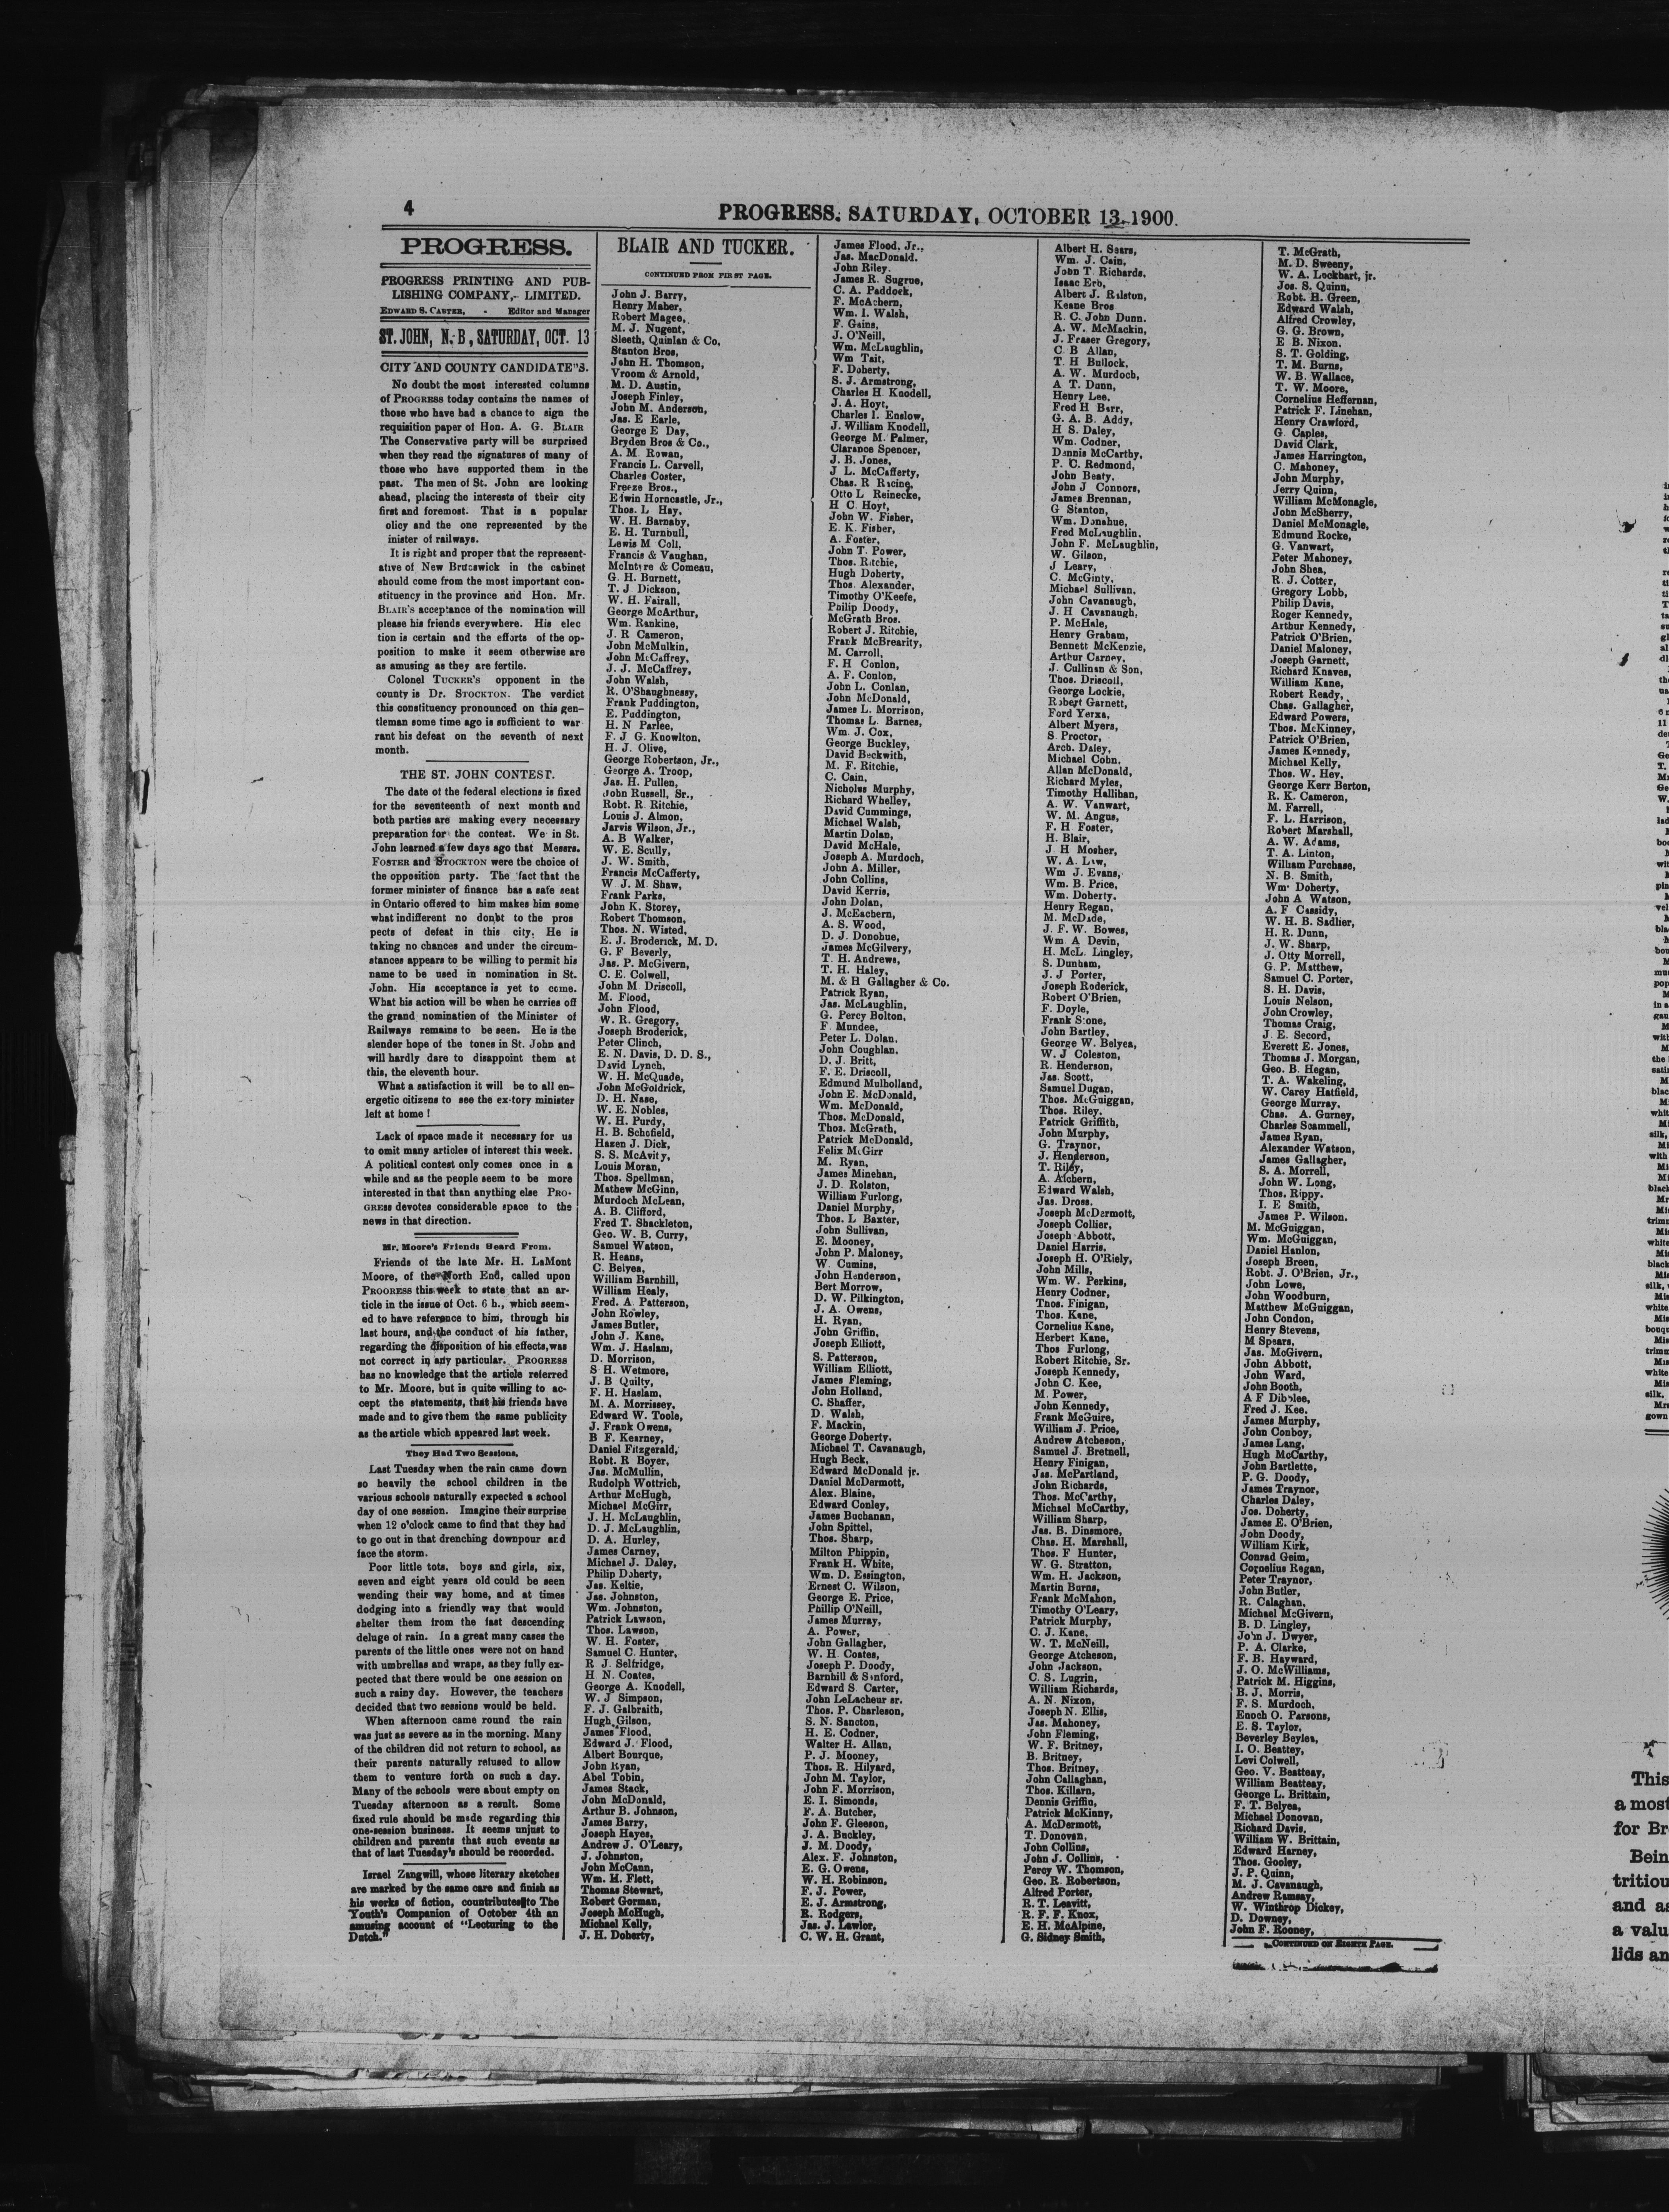 4
PROGRESS. SATURDAY, OCTOBER 13, 1900.
PROGRESS.
PROGRESS PRINTING AND PUB-
LISHING COMPANY,- LIMITED.
EDWARD S. CARTER, - Editor and Manager
ST. JOHN, N. B, SATURDAY, OCT. 13
CITY AND COUNTY CANDIDATE"S.
No doubt the most interested columns
of PROGRESS today contains the names of
those who have had a chance to sign the
requisition paper of Hon. A. G. BLAIR
The Conservative party will be surprised
when they read the signatures of many of
those who have supported them in the
past. The men of St. John are looking
ahead, placing the interests of their city
first and foremost. That is a popular
olicy and the one represented by the
inister of railways.
It is right and proper that the represent-
ative of New Brunswick in the cabinet
should come from the most important con-
stituency in the province and Hon. Mr.
BLAIR'S acceptance of the nomination will
please his friends everywhere. His elec
tion is certain and the efforts of the op-
position to make it seem otherwise are
as amusing as they are fertile.
Colonel TUCKER'S opponent in the
county is Dr. STOCKTON. The verdict
this constituency pronounced on this gen-
tleman some time ago is sufficient to war
rant his defeat on the seventh of next
month.
THE ST. JOHN CONTEST.
The date of the federal elections is fixed
for the seventeenth of next month and
both parties are making every necessary
preparation for the contest. We in St.
John learned a few days ago that Messrs.
FOSTER and STOCKTON were the choice of
the opposition party. The fact that the
former minister of finance has a safe seat
in Ontario offered to him makes him some
what indifferent no doubt to the pros
pects of defeat in this city. He is
taking no chances and under the circum-
stances appears to be willing to permit his
name to be used in nomination in St.
John. His acceptance is yet to come.
What his action will be when he carries off
the grand nomination of the Minister of
Railways remains to be seen. He is the
slender hope of the tones in St. John and
will hardly dare to disappoint them at
this, the eleventh hour.
What a satisfaction it will be to all en-
ergetic citizens to see the ex-tory minister
left at home!
Lack of space made it necessary for us
to omit many articles of interest this week.
A political contest only comes once in a
while and as the people seem to be more
interested in that than anything else PRO-
GRESS devotes considerable space to the
news in that direction.
Mr. Moore's Friends Heard From.
Friends of the late Mr. H. LaMont
Moore, of the North End, called upon
PROGRESS this week to state that an ar-
ticle in the issue of Oct. 6 h., which seem-
ed to have reference to him, through his
last hours, and the conduct of his father,
regarding the disposition of his effects, was
not correct in any particular. PROGRESS
has no knowledge that the article referred
to Mr. Moore, but is quite willing to ac-
cept the statements, that his friends have
made and to give them the same publicity
as the article which appeared last week.
They Had Two Sessions.
Last Tuesday when the rain came down
so heavily the school children in the
various schools naturally expected a school
day of one session. Imagine their surprise
when 12 o'clock came to find that they had
to go out in that drenching downpour and
face the storm.
Poor little tots, boys and girls, six,
seven and eight years old could be seen
wending their way home, and at times
dodging into a friendly way that would
shelter them from the fast descending
deluge of rain. In a great many cases the
parents of the little ones were not on hand
with umbrellas and wraps, as they fully ex-
pected that there would be one session on
such a rainy day. However, the teachers
decided that two sessions would be held.
When afternoon came round the rain
was just as severe as in the morning. Many
of the children did not return to school, as
their parents naturally refused to allow
them to venture forth on such a day.
Many of the schools were about empty on
Tuesday afternoon as a result. Some
fixed rule should be made regarding this
one-session business. It seems unjust to
children and parents that such events as
that of last Tuesday's should be recorded.
Israel Zangwill, whose literary sketches
are marked by the same care and finish as
his works of fiction, countributes to The
Youth's Companion of October 4th an
amusing account of "Lecturing to the
Dutch."
BLAIR AND TUCKER.
CONTINUED FROM FIRST PAGE.
John J. Barry,
Henry Maher,
Robert Magee,
M. J. Nugent,
Sleeth, Quinlan & Co,
Stanton Bros,
John H. Thomson,
Vroom & Arnold,
M. D. Austin,
Joseph Finley,
John M. Anderson,
Jas. E Earle,
George E Day,
Bryden Bros & Co.,
A. M. Rowan,
Francis L. Carvell,
Charles Coster,
Freeze Bros.,
Edwin Horncastle, Jr.,
Thos. L Hay,
W. H. Barnaby,
E. H. Turnbull,
Lewis M Coll,
Francis & Vaughan,
McIntyre & Comeau,
G. H. Burnett,
T. J Dickson,
W. H. Fairall,
George McArthur,
Wm. Rankine,
J. R Cameron,
John McMulkin,
John McCaffrey,
J. J. McCaffrey,
John Walsh,
R. O'Shaughnessy,
Frank Puddington,
E. Puddington,
H. N Parlee,
F. J G. Knowlton,
H. J. Olive,
George Robertson, Jr.,
George A. Troop,
Jas. H. Pullen,
John Russell, Sr.,
Robt. R. Ritchie,
Louis J. Almon,
Jarvis Wilson, Jr.,
A. B Walker,
W. E. Scully,
J. W. Smith,
Francis McCafferty,
W J. M. Shaw,
Frank Parks,
John K. Storey,
Robert Thomson,
Thos. N. Wisted,
E. J. Broderick, M. D.
G. F Beverly,
Jas. P. McGivern,
C. E. Colwell,
John M Driscoll,
M. Flood,
John Flood,
W. R. Gregory,
Joseph Broderick,
Peter Clinch,
E. N. Davis, D. D. S.,
David Lynch,
W. H. McQuade,
John McGoldrick,
D. H. Nase,
W. E. Nobles,
W. H. Purdy,
H. B. Schofield,
Hazen J. Dick,
S. S. McAvity,
Louis Moran,
Thos. Spellman,
Mathew McGinn,
Murdoch McLean,
A. B. Clifford,
Fred T. Shackleton,
Geo. W. B. Curry,
Samuel Watson,
R. Heans,
C. Belyea,
William Barnhill,
William Healy,
Fred. A. Patterson,
John Rowley,
James Butler,
John J. Kane,
Wm. J. Haslam,
D. Morrison,
S H. Wetmore,
J. B Quilty,
F. H. Haslam,
M. A. Morrissey,
Edward W. Toole,
J. Frank Owens,
B F. Kearney,
Daniel Fitzgerald,
Robt. R Boyer,
Jas. McMullin,
Rudolph Wottrich,
Arthur McHugh,
Michael McGirr,
J. H. McLaughlin,
D. J. McLaughlin,
D. A. Hurley,
James Carney,
Michael J. Daley,
Philip Doherty,
Jas. Keltie,
Jas. Johnston,
Wm. Johnston,
Patrick Lawson,
Thos. Lawson,
W. H. Foster,
Samuel C. Hunter,
R J. Selfridge,
H N. Coates,
George A. Knodell,
W. J Simpson,
F. J. Galbraith,
Hugh Gilson,
James Flood,
Edward J. Flood,
Albert Bourque,
John Ryan,
Abel Tobin,
James Stack,
John McDonald,
Arthur B. Johnson,
James Barry,
Joseph Hayes,
Andrew J. O'Leary,
J. Johnston,
John McCann,
Wm. H. Flett,
Thomas Stewart,
Robert Gorman,
Joseph McHugh,
Michael Kelly,
J. H. Doherty,
James Flood, Jr.,
Jas. MacDonald.
John Riley.
James R. Sugrue,
C. A. Paddock,
F. McAchern,
Wm. I. Walsh,
F. Gains,
J. O'Neill,
Wm. McLaughlin,
Wm Tait,
F. Doherty,
S. J. Armstrong,
Charles H Knodell,
J. A. Hoyt,
Charles I. Enslow,
J. William Knodell,
George M. Palmer,
Clarance Spencer,
J. B. Jones,
J L. McCafferty,
Chas. R Racine,
Otto L Reinecke,
H C. Hoyt,
John W. Fisher,
E. K. Fisher,
A. Foster,
John T. Power,
Thos. Ritchie,
Hugh Doherty,
Thos. Alexander,
Timothy O'Keefe,
Philip Doody,
McGrath Bros.
Robert J. Ritchie,
Frank McBrearity,
M. Carroll,
F. H Conlon,
A. F. Conlon,
John L. Conlan,
John McDonald,
James L. Morrison,
Thomas L. Barnes,
Wm. J. Cox,
George Buckley,
David Beckwith,
M. F. Ritchie,
C. Cain,
Nicholas Murphy,
Richard Whelley,
David Cummings,
Michael Walsh,
Martin Dolan,
David McHale,
Joseph A. Murdoch,
John A. Miller,
John Collins,
David Kerris,
John Dolan,
J. McEachern,
A. S. Wood,
D. J. Donohue,
James McGilvery,
T. H. Andrews,
T. H. Haley,
M. & H Gallagher & Co.
Patrick Ryan,
Jas. McLaughlin,
G. Percy Bolton,
F. Mundee,
Peter L. Dolan,
John Coughlan,
D. J. Britt,
F. E. Driscoll,
Edmund Mulholland,
John E. McDonald,
Wm. McDonald,
Thos. McDonald,
Thos. McGrath,
Patrick McDonald,
Felix McGirr
M. Ryan,
James Minehan,
J. D. Rolston,
William Furlong,
Daniel Murphy,
Thos. L Baxter,
John Sullivan,
E. Mooney,
John P. Maloney,
W. Cumins,
John Henderson,
Bert Morrow,
D. W. Pilkington,
J. A. Owens,
H. Ryan,
John Griffin,
Joseph Elliott,
S. Patterson,
William Elliott,
James Fleming,
John Holland,
C. Shaffer,
D. Walsh,
F. Mackin,
George Doherty,
Michael T. Cavanaugh,
Hugh Beck,
Edward McDonald jr.
Daniel McDermott,
Alex. Blaine,
Edward Conley,
James Buchanan,
John Spittel,
Thos. Sharp,
Milton Phippin,
Frank H. White,
Wm. D. Essington,
Ernest C. Wilson,
George E. Price,
Phillip O'Neill,
James Murray,
A. Power,
John Gallagher,
W. H. Coates,
Joseph P. Doody,
Barnhill & Sanford,
Edward S Carter,
John LeLacheur sr.
Thos. P. Charleson,
S. N. Sancton,
H. E. Codner,
Walter H. Allan,
P. J. Mooney,
Thos. R. Hilyard,
John M. Taylor,
John F. Morrison,
E. I. Simonds,
F. A. Butcher,
John F. Gleeson,
J. A. Buckley,
J. M. Doody,
Alex. F. Johnston,
E. G. Owens,
W. H. Robinson,
F. J. Power,
E. J. Armstrong,
R. Rodgers,
Jas. J. Lawlor,
C. W. H. Grant,
Albert H. Sears,
Wm. J. Cain,
John T. Richards,
Isaac Erb,
Albert J. Ralston,
Keane Bros
R. C. John Dunn.
A. W. McMackin,
J. Fraser Gregory,
C B Allan,
T. H Bullock,
A. W. Murdoch,
A T. Dunn,
Henry Lee,
Fred H Barr,
G. A. B. Addy,
H S. Daley,
Wm. Codner,
Dennis McCarthy,
P. C. Redmond,
John Beaty,
John J Connors,
James Brennan,
G Stanton,
Wm. Donahue,
Fred McLaughlin,
John F. McLaughlin,
W. Gilson,
J Leary,
C. McGinty,
Michael Sullivan,
John Cavanaugh,
J. H Cavanaugh,
P. McHale,
Henry Graham,
Bennett McKenzie,
Arthur Carney,
J. Cullinan & Son,
Thos. Driscoll,
George Lockie,
Robert Garnett,
Ford Yerxa,
Albert Myers,
S. Proctor,
Arch. Daley,
Michael Cohn,
Allan McDonald,
Richard Myles,
Timothy Hallihan,
A. W. Vanwart,
W. M. Angus,
F. H Foster,
H. Blair,
J H Mosher,
W. A. Law,
Wm J. Evans,
Wm. B. Price,
Wm. Doherty,
Henry Regan,
M. McDade,
J. F. W. Bowes,
Wm A Devin,
H. McL. Lingley,
S. Dunham,
J. J Porter,
Joseph Roderick,
Robert O'Brien,
F. Doyle,
Frank Stone,
John Bartley,
George W. Belyea,
W. J Coleston,
R. Henderson,
Jas. Scott,
Samuel Dugan,
Thos. McGuiggan,
Thos. Riley,
Patrick Griffith,
John Murphy,
G. Traynor,
J. Henderson,
T. Riley,
A. Atchern,
Edward Walsh,
Jas. Dross,
Joseph McDermott,
Joseph Collier,
Joseph Abbott,
Daniel Harris,
Joseph H. O'Riely,
John Mills,
Wm. W. Perkins,
Henry Codner,
Thos. Finigan,
Thos. Kane,
Cornelius Kane,
Herbert Kane,
Thos Furlong,
Robert Ritchie, Sr.
Joseph Kennedy,
John C. Kee,
M. Power,
John Kennedy,
Frank McGuire,
William J. Price,
Andrew Atcheson,
Samuel J. Bretnell,
Henry Finigan,
Jas. McPartland,
John Richards,
Thos. McCarthy,
Michael McCarthy,
William Sharp,
Jas. B. Dinsmore,
Chas. H. Marshall,
Thos. F Hunter,
W. G. Stratton,
Wm. H. Jackson,
Martin Burns,
Frank McMahon,
Timothy O'Leary,
Patrick Murphy,
C. J. Kane,
W. T. McNeill,
George Atcheson,
John Jackson,
C. S. Lugrin,
William Richards,
A. N. Nixon,
Joseph N. Ellis,
Jas. Mahoney,
John Fleming,
W. F. Britney,
B. Britney,
Thos. Britney,
John Callaghan,
Thos. Killarn,
Dennis Griffin,
Patrick McKinny,
A. McDermott,
T. Donovan,
John Collins,
John J. Collins,
Percy W. Thomson,
Geo. R. Robertson,
Alfred Porter,
R. T. Leavitt,
R. F. F. Knox,
E. H. McAlpine,
G. Sidney Smith,
T. McGrath,
M. D. Sweeny,
W. A. Lockhart, jr.
Jos. S. Quinn,
Robt. H. Green,
Edward Walsh,
Alfred Crowley,
G. G. Brown,
E B. Nixon.
S. T. Golding,
T. M. Burns,
W. B. Wallace,
T. W. Moore,
Cornelius Heffernan,
Patrick F. Linehan,
Henry Crawford,
G. Caples,
David Clark,
James Harrington,
C. Mahoney,
John Murphy,
Jerry Quinn,
William McMonagle,
John McSherry,
Daniel McMonagle,
Edmund Rocke,
G. Vanwart,
Peter Mahoney,
John Shea,
R. J. Cotter,
Gregory Lobb,
Philip Davis,
Roger Kennedy,
Arthur Kennedy,
Patrick O'Brien,
Daniel Maloney,
Joseph Garnett,
Richard Knaves,
William Kane,
Robert Ready,
Chas. Gallagher,
Edward Powers,
Thos. McKinney,
Patrick O'Brien,
James Kennedy,
Michael Kelly,
Thos. W. Hey,
George Kerr Berton,
R. K. Cameron,
M. Farrell,
F. L. Harrison,
Robert Marshall,
A. W. Adams,
T. A. Linton,
William Purchase,
N. B. Smith,
Wm. Doherty,
John A Watson,
A. F Cassidy,
W. H. B. Sadlier,
H. R. Dunn,
J. W. Sharp,
J. Otty Morrell,
G. P. Matthew,
Samuel C. Porter,
S. H. Davis,
Louis Nelson,
John Crowley,
Thomas Craig,
J. E. Secord,
Everett E. Jones,
Thomas J. Morgan,
Geo. B. Hegan,
T. A. Wakeling,
W. Carey Hatfield,
George Murray,
Chas. A. Gurney,
Charles Scammell,
James Ryan,
Alexander Watson,
James Gallagher,
S. A. Morrell,
John W. Long,
Thos. Rippy.
I. E Smith,
James P. Wilson.
M. McGuiggan,
Wm. McGuiggan,
Daniel Hanlon,
Joseph Breen,
Robt. J. O'Brien, Jr.,
John Lowe,
John Woodburn,
Matthew McGuiggan,
John Condon,
Henry Stevens,
M Spears,
Jas. McGivern,
John Abbott,
John Ward,
John Booth,
A F Dibblee,
Fred J. Kee.
James Murphy,
John Conboy,
James Lang,
Hugh McCarthy,
John Bartlette,
P. G. Doody,
James Traynor,
Charles Daley,
Jos. Doherty,
James E. O'Brien,
John Doody,
William Kirk,
Conrad Geim,
Cornelius Regan,
Peter Traynor,
John Butler,
R. Calaghan,
Michael McGivern,
B. D. Lingley,
John J. Dwyer,
P. A. Clarke,
F. B. Hayward,
J. O. McWilliams,
Patrick M. Higgins,
B. J. Morris,
F. S. Murdoch,
Enoch O. Parsons,
E. S. Taylor,
Beverley Beylea,
I. O. Beattey,
Levi Colwell,
Geo. V. Beatteay,
William Beatteay,
George L. Brittain,
F. T. Belyea,
Michael Donovan,
Richard Davis,
William W. Brittain,
Edward Harney,
Thos. Gooley,
J. P. Quinn,
M. J. Cavanaugh,
Andrew Ramsay,
W. Winthrop Dickey,
D. Downey,
John F. Rooney,
CONTINUED ON EIGHTH PAGE.
This
a most
for Br
Bein
tritiou
and as
a valu
lids an